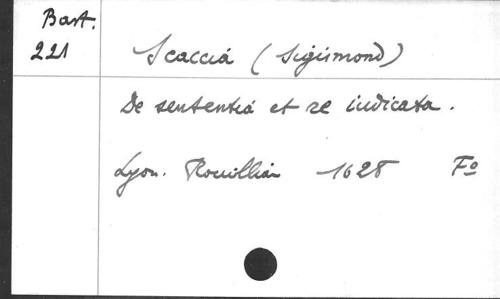 Bart.
221
Scaccia (Sigismond)
De sententia et re iudicata.
Lyon. Rouillian 1628 Fo